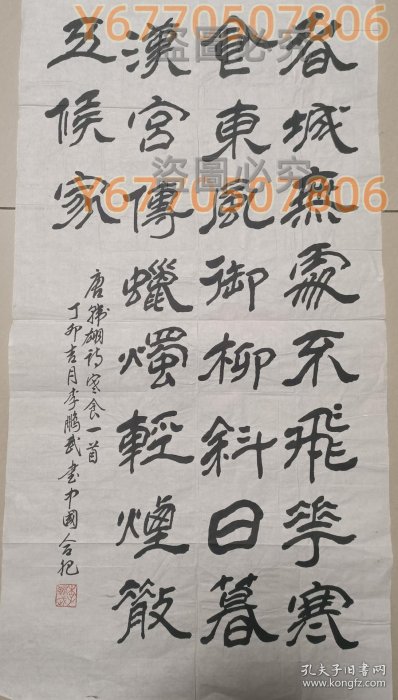 春城無處不飛花寒
食東風御柳斜日暮
漢宮傳蠟燭輕煙散
五侯家
唐韓翃詩寒食一首
丁卯吉月李鵬武書中國合肥
Y6770507806
盜圖必究
盜圖必究
Y6770507806
孔夫子旧书网
www.kongfz.com